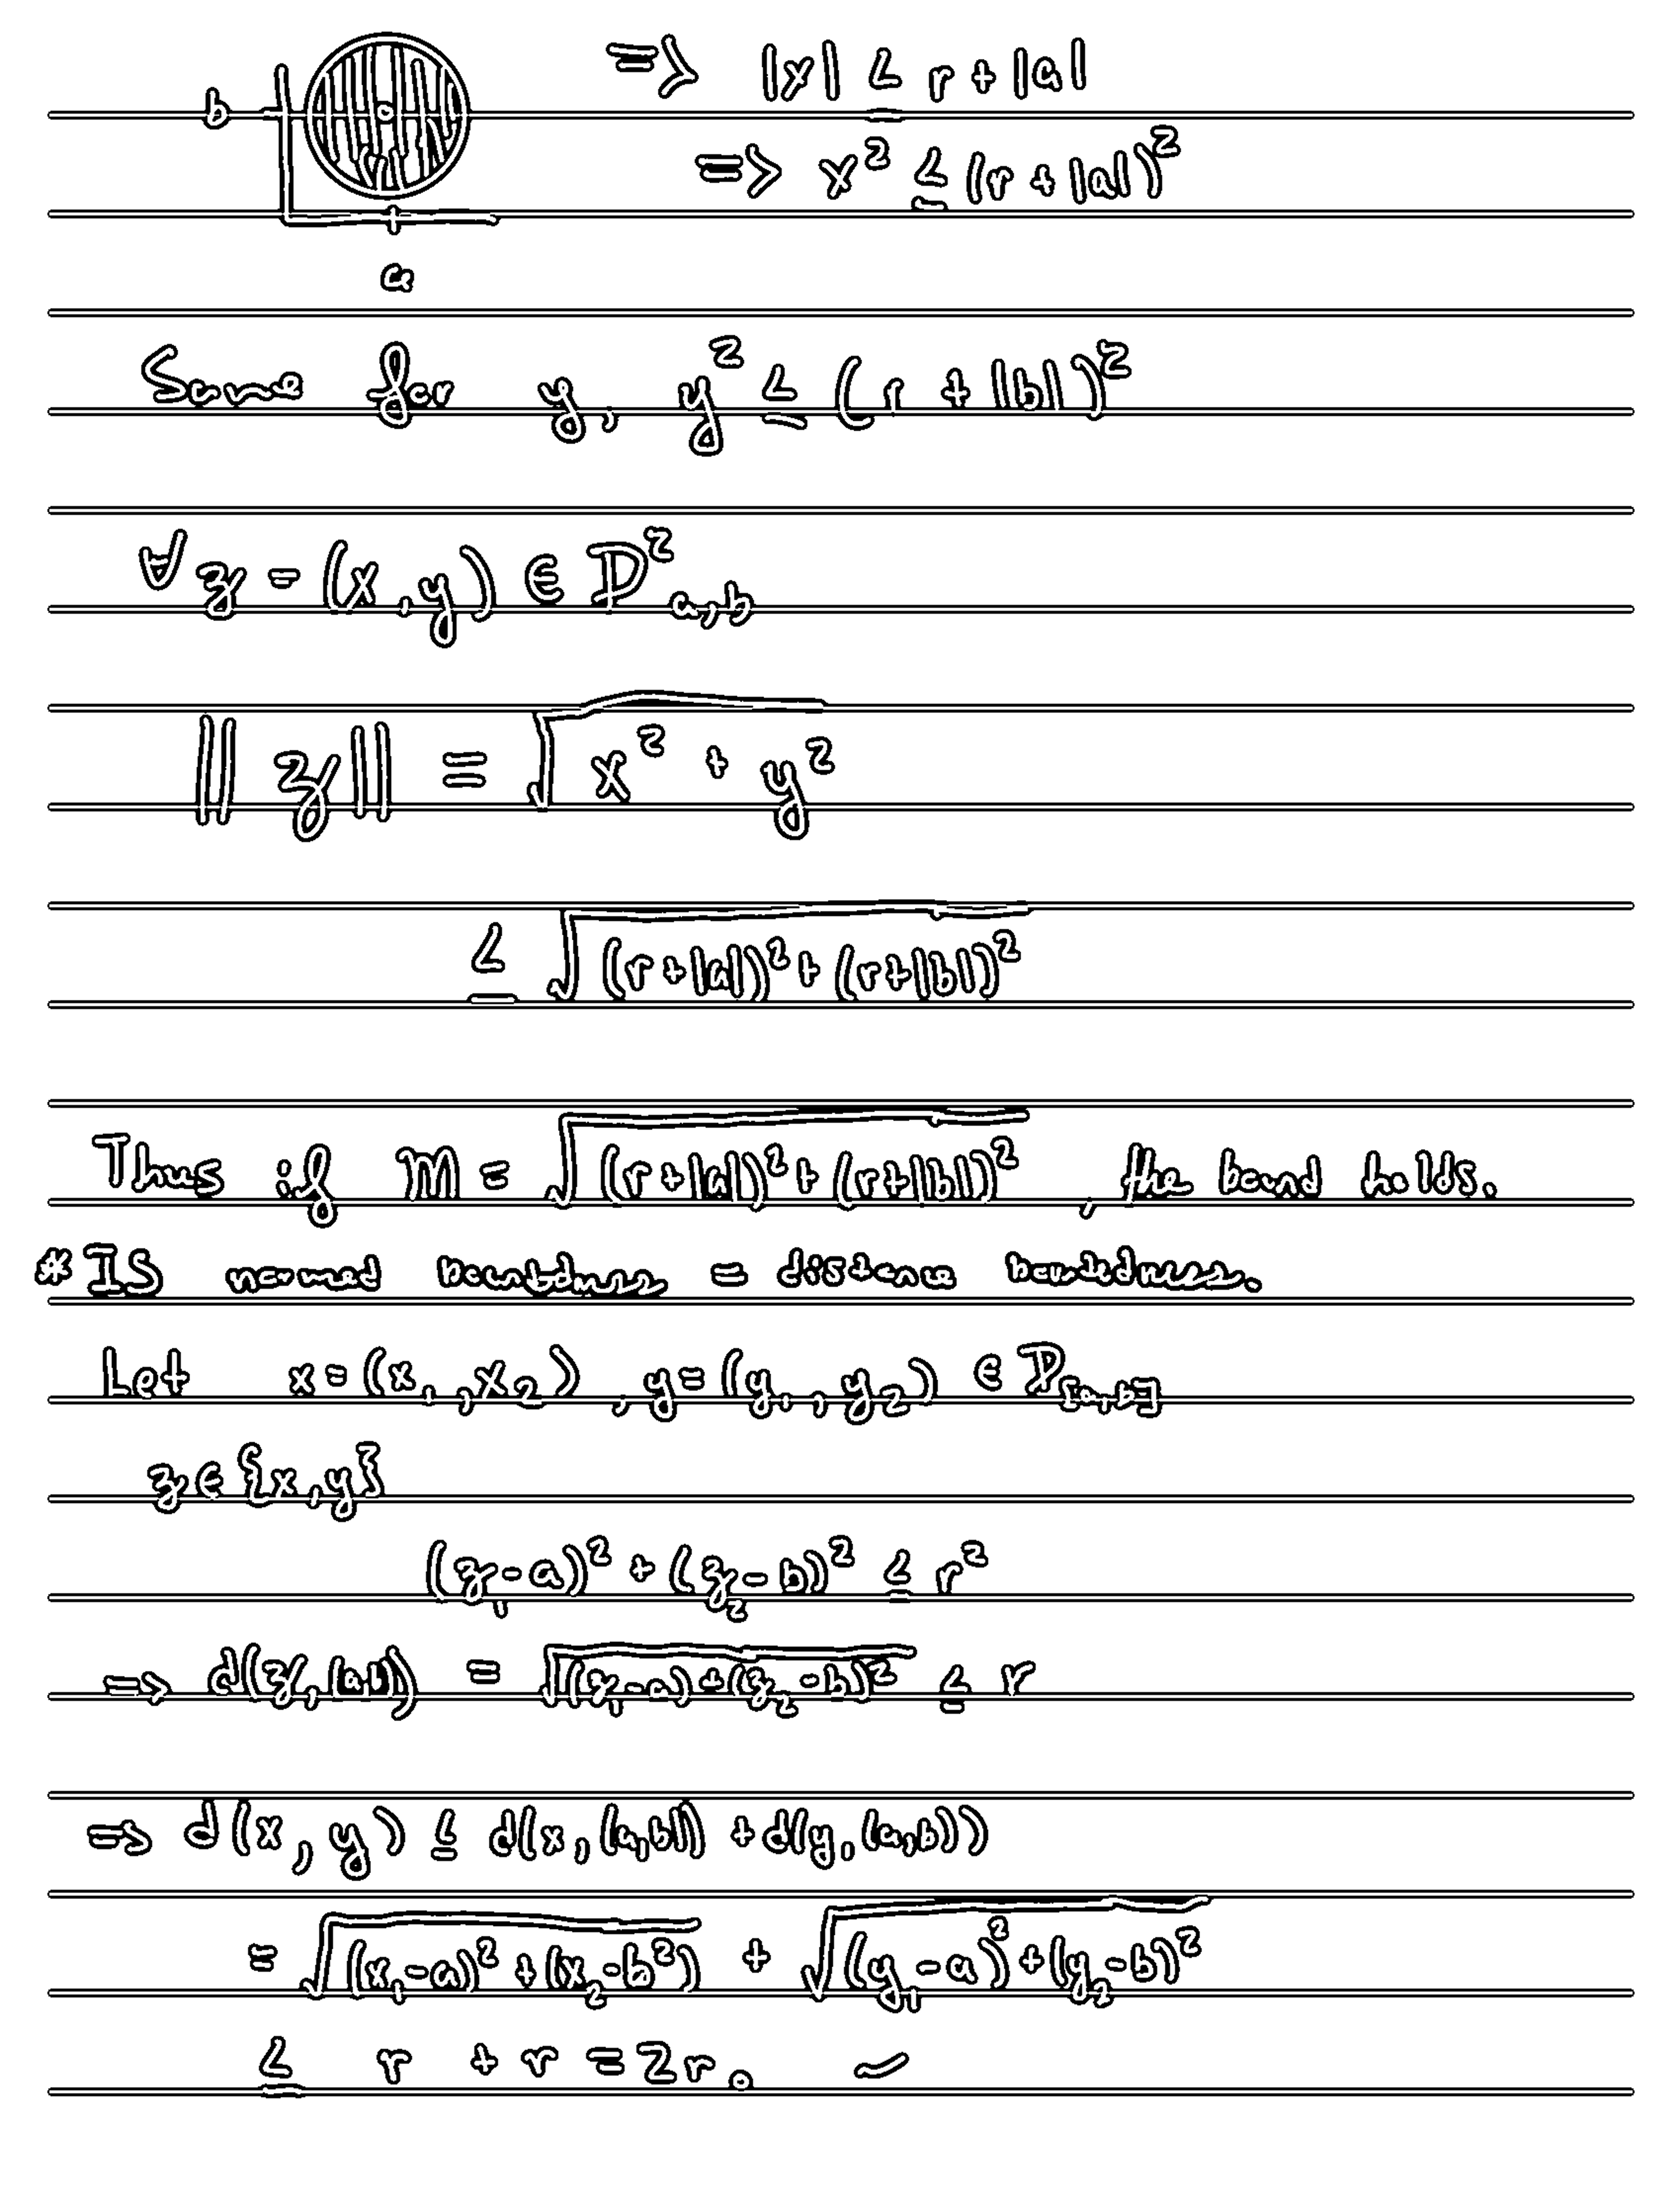 b
a
=> |x| ≤ r + |a|
=> x² ≤ (r + |a|)²
Same for y, y² ≤ (r + |b|)²
∀ z = (x, y) ∈ D²_{a,b}
||z|| = √(x² + y²)
≤ √((r+|a|)² + (r+|b|)²)
Thus if M = √((r+|a|)² + (r+|b|)²), the bound holds.
* IS normed = distance boundedness.
Let x = (x₁, x₂), y = (y₁, y₂) ∈ D_{[a,b]}
z ∈ {x, y}
(z₁ - a)² + (z₂ - b)² ≤ r²
=> d(z, (a,b)) = √((z₁-a) + (z₂-b)²) ≤ r
=> d(x, y) ≤ d(x, (a,b)) + d(y, (a,b))
= √((x₁-a)² + (x₂-b²)) + √((y₁-a)² + (y₂-b)²)
≤ r + r = 2r.